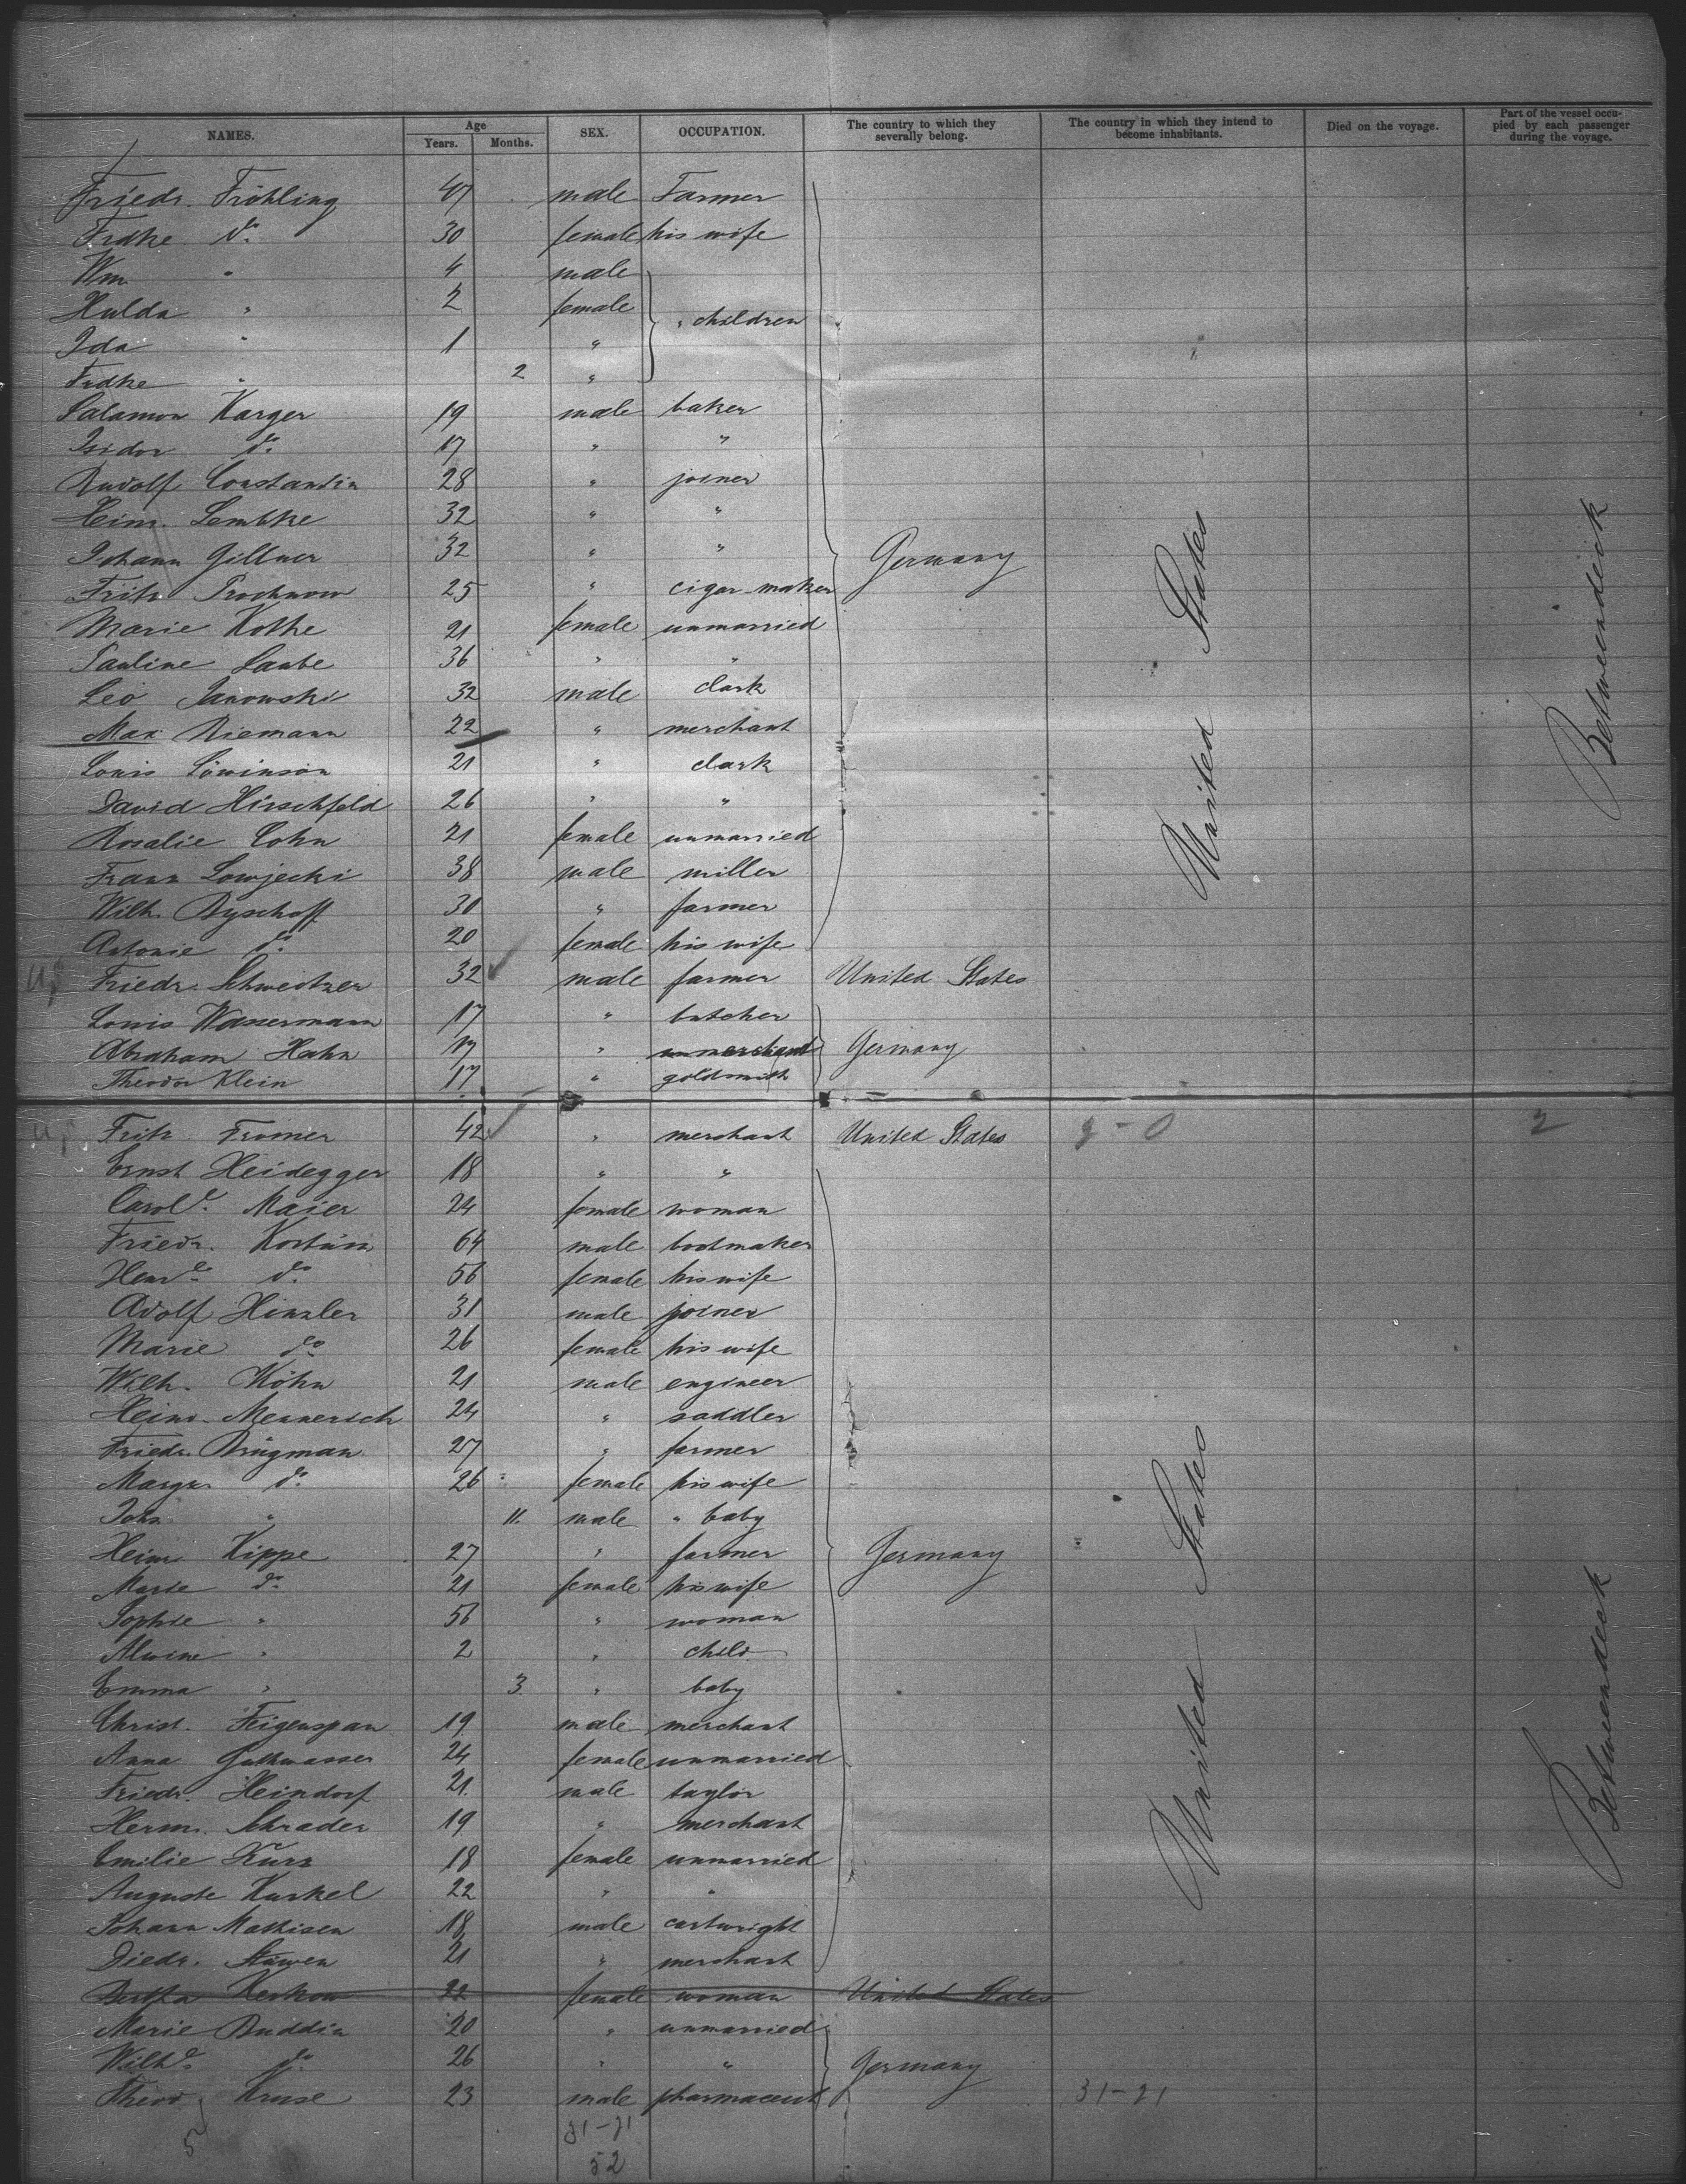 NAMES. Age Years. Months. SEX. OCCUPATION. The country to which they severally belong. The country in which they intend to become inhabitants. Died on the voyage. Part of the vessel occupied by each passenger during the voyage.
Friedr. Fröhling 47 male Farmer
Frdke do. 30 female his wife
Wm " 4 male
Hulda " 2 female " children
Ida " 1 "
Frdke " 2 "
Salamon Karger 19 male baker
Isidor do. 17 " "
Rudolf Constantin 28 " joiner
Heinr. Lembke 32 " "
Johann Gillner 32 " " Germany
Fritz Prochnow 25 " cigar-maker
Marie Kothe 21 female unmarried
Pauline Laube 36 " "
Leo Janowski 32 male clark
Max Riemann 22 " merchant
Louis Löwinson 21 " clark
David Hirschfeld 26 " "
Rosalie Cohn 21 female unmarried
Franz Lowjecki 38 male miller
Wilh. Byschoff 30 " farmer
Antonie do. 20 female his wife
Friedr. Schweitzer 32 male farmer United States
Louis Wassermann 17 " butcher
Abraham Hahn 17 " merchant Germany
Theodor Klein 17 " goldsmith
United States
Betweendeck
Fritz Fromer 42 " merchant United States 2-0 2
Ernst Heidegger 18 " "
Carole. Maier 24 female woman
Friedr. Kortüm 64 male bootmaker
Henre do. 56 female his wife
Adolf Hinzler 31 male joiner
Marie do 26 female his wife
Wilh. Köhn 21 male engineer
Heinr. Mennersch 24 " saddler
Friedr. Brügman 27 " farmer
Margr. do. 26 female his wife
Johs. " 11. male " baby
Heinr. Kippe 27 " farmer Germany
Marie do. 21 female his wife
Sophie " 56 " woman
Alwine " 2 " child
Emma " 3 " baby
Christ. Feigenspan 19 male merchant
Anna Guthwasser 24 female unmarried
Friedr. Heindorf 21. male taylor
Herm. Schrader 19 " merchant
Emilie Kurz 18 female unmarried
Auguste Kunkel 22 " "
Johann Mathisen 18 male cartwright
Diedr. Stüwen 21 " merchant
Bertha Kerkow 22 female woman United States
Marie Buddin 20 " unmarried
Wilhe. do. 26 " " Germany
Theod. Kruse 23 male pharmaceut 31-21
United States
Betweendeck
31-21
52